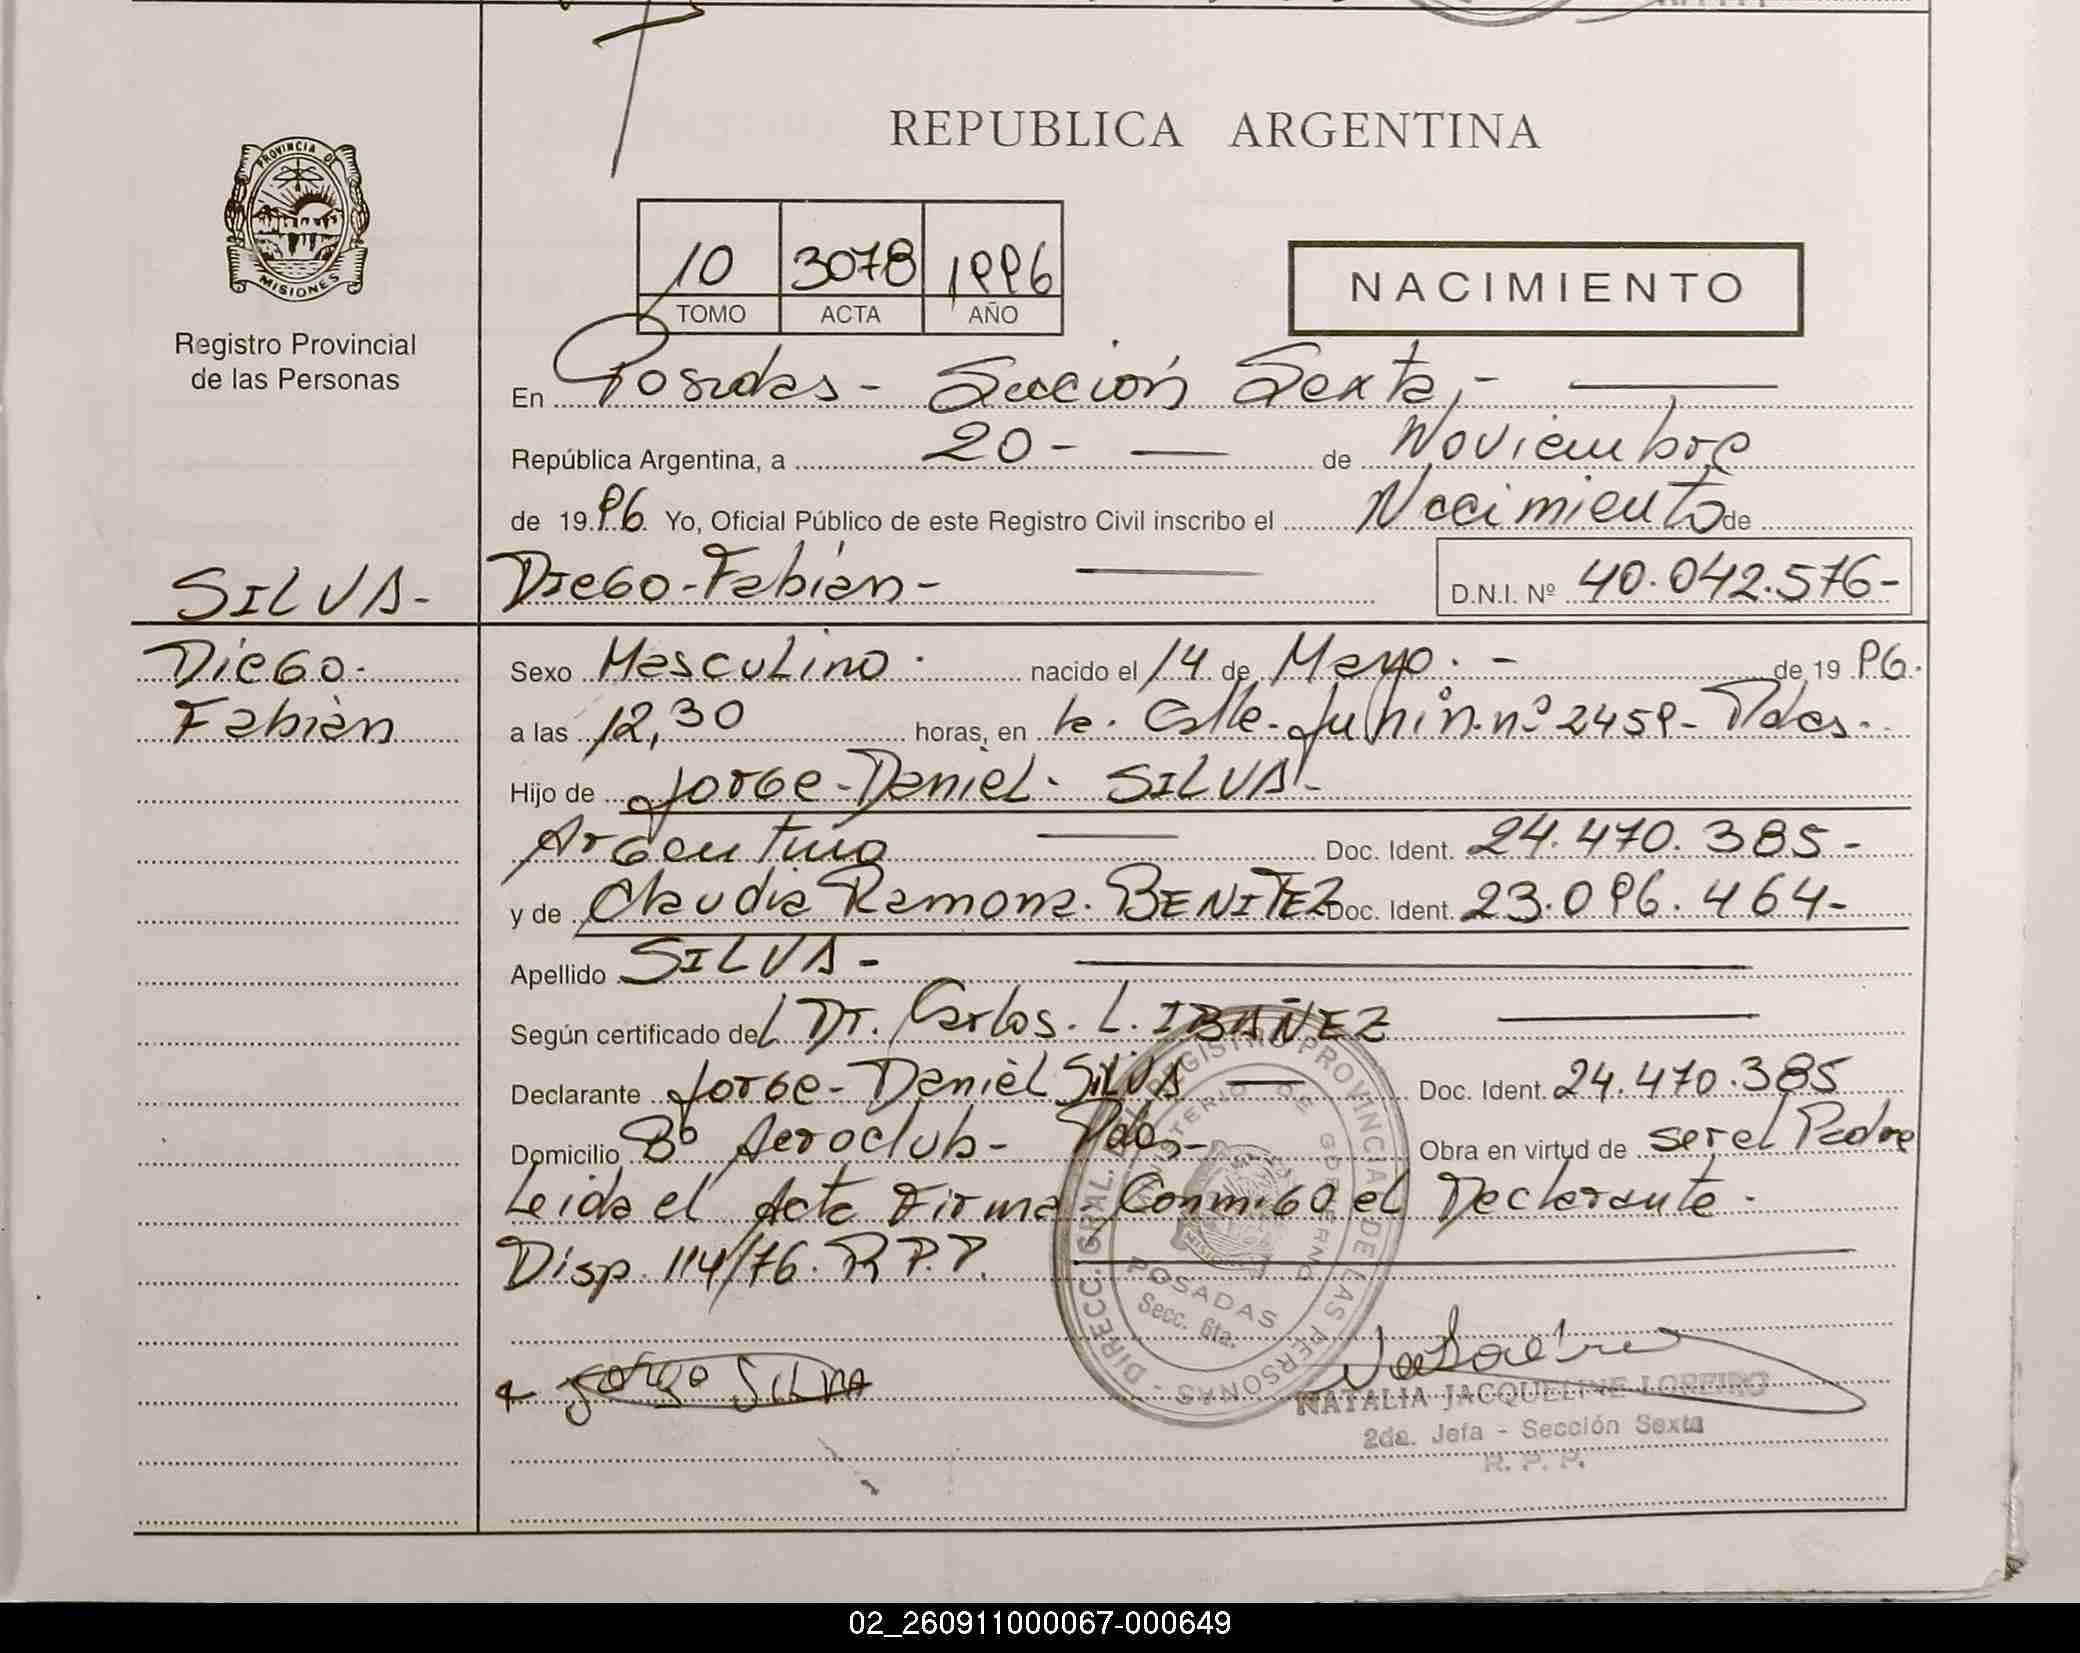 REPUBLICA ARGENTINA
PROVINCIA DE
MISIONES
Registro Provincial
de las Personas
10 3078 1996
TOMO ACTA AÑO
NACIMIENTO
En Posadas - Sección Sexta,-
República Argentina, a 20- de Noviembre
de 19 96 Yo, Oficial Público de este Registro Civil inscribo el Nacimiento de
SILVA- Diego-Fabián- D.N.I. Nº 40.042.576-
Diego- Sexo Masculino. nacido el 14 de Mayo.- de 19 96.
Fabián a las 12,30 horas, en la. Calle-Junín.nº 2459- Pdas-
Hijo de Jorge-Daniel- SILVA-
Argentino Doc. Ident. 24.470.385-
y de Claudia Ramona. BENITEZ Doc. Ident. 23.096.464-
Apellido SILVA-
Según certificado del Dr. Carlos. L. IBAÑEZ
Declarante Jorge-Daniel SILVA Doc. Ident. 24.470.385
Domicilio Bº Aeroclub- Pdas- Obra en virtud de ser el Padre
Leida el Acta Firma- Conmigo el Declarante.
Disp. 114/76. R.P.P.
DIRECC. GRAL. REGISTRO PROVINCIAL DE LAS PERSONAS -
MINISTERIO DE GOBIERNO
POSADAS
Secc. 6ta.
Jorge Silva
NATALIA JACQUELINE LOREIRO
2da. Jefa - Sección Sexta
R. P. P.
02_260911000067-000649